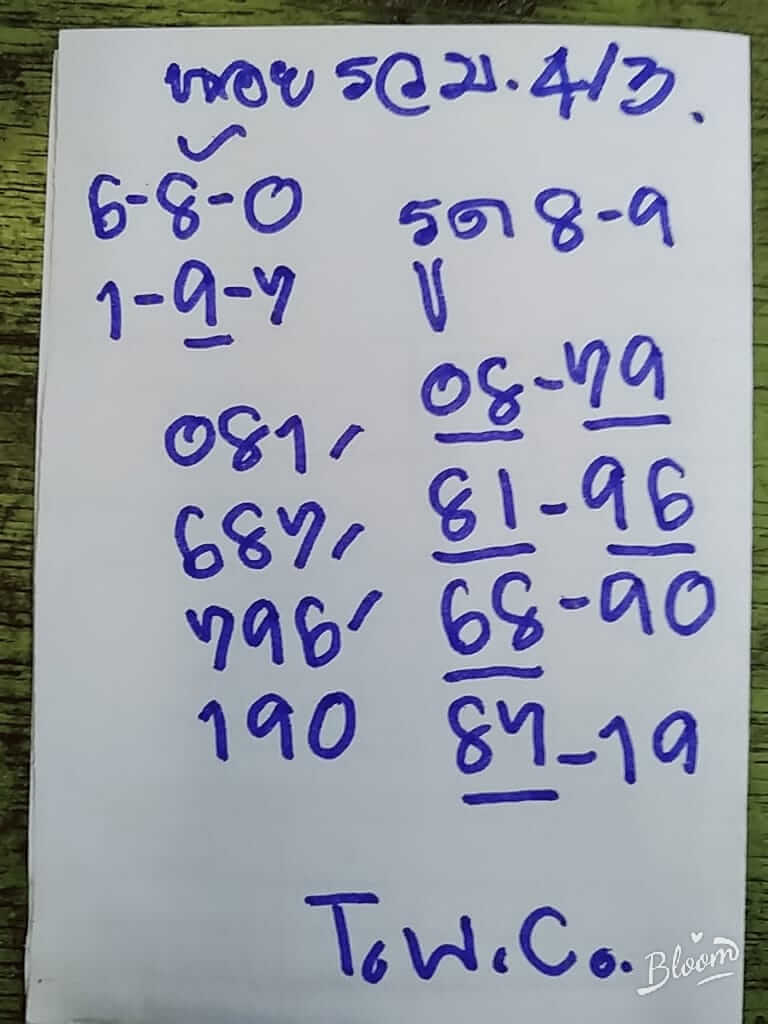 หนอย รวม. 4/3.
6-8-0
1-9-7
รูด 8-9
081,
687,
796,
190
08-79
81-96
68-90
87-19
T.W.Co.
Bloom